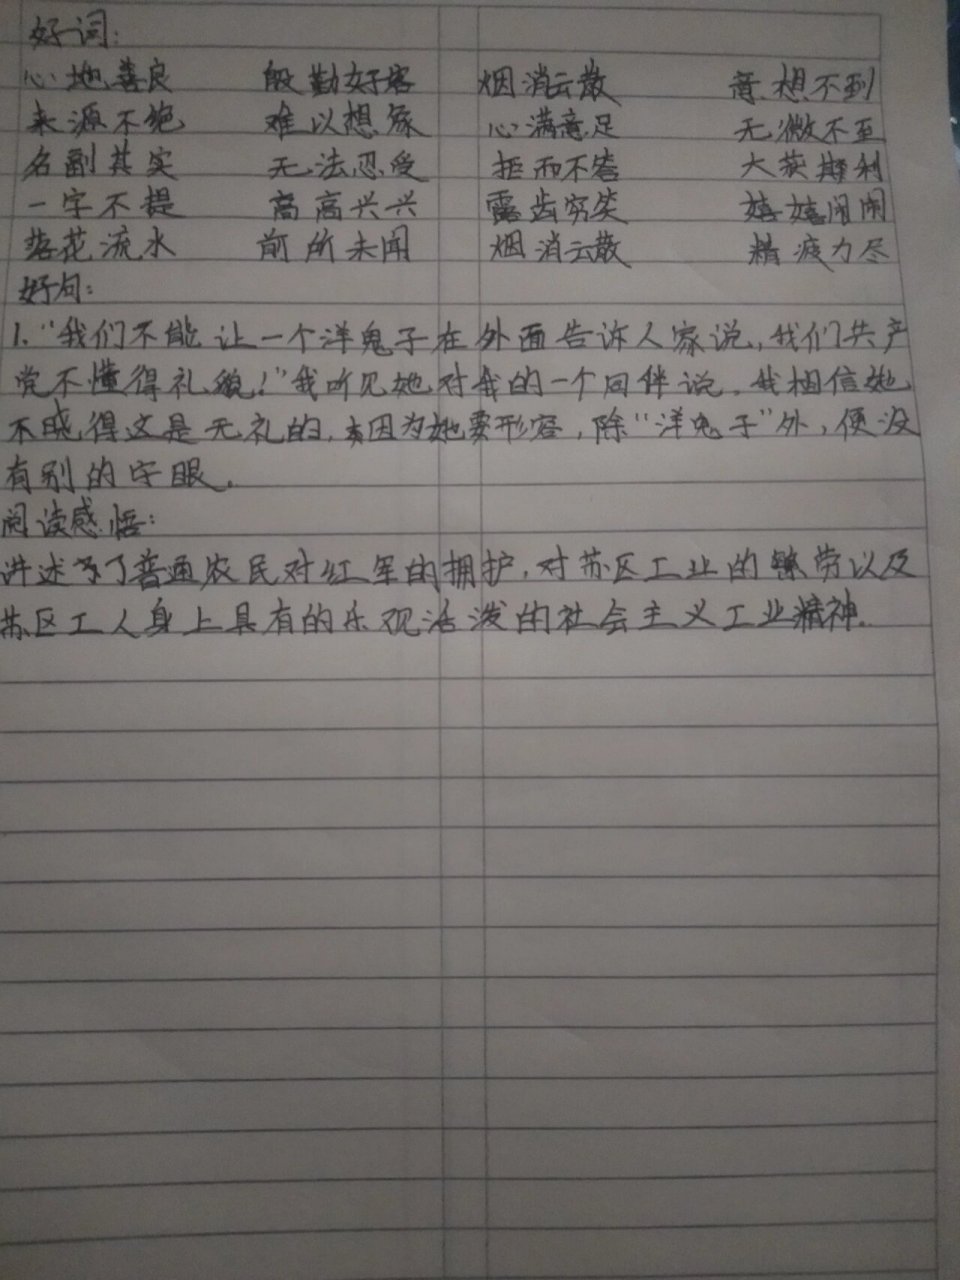 好词：
心地善良 殷勤好客 烟消云散 意想不到
来源不绝 难以想象 心满意足 无微不至
名副其实 无法忍受 拒而不答 大获胜利
一字不提 高高兴兴 露齿穷笑 嬉嬉闹闹
落花流水 前所未闻 烟消云散 精疲力尽
好句：
1.“我们不能让一个洋鬼子在外面告诉人家说，我们共产
党不懂得礼貌！”我听见她对我的一个同伴说。我相信她
不晓得这是无礼的，因为她要形容，除“洋鬼子”外，便没
有别的字眼。
阅读感悟：
讲述了普通农民对红军的拥护，对苏区工业的勤劳以及
苏区工人身上具有的乐观活泼的社会主义工业精神。